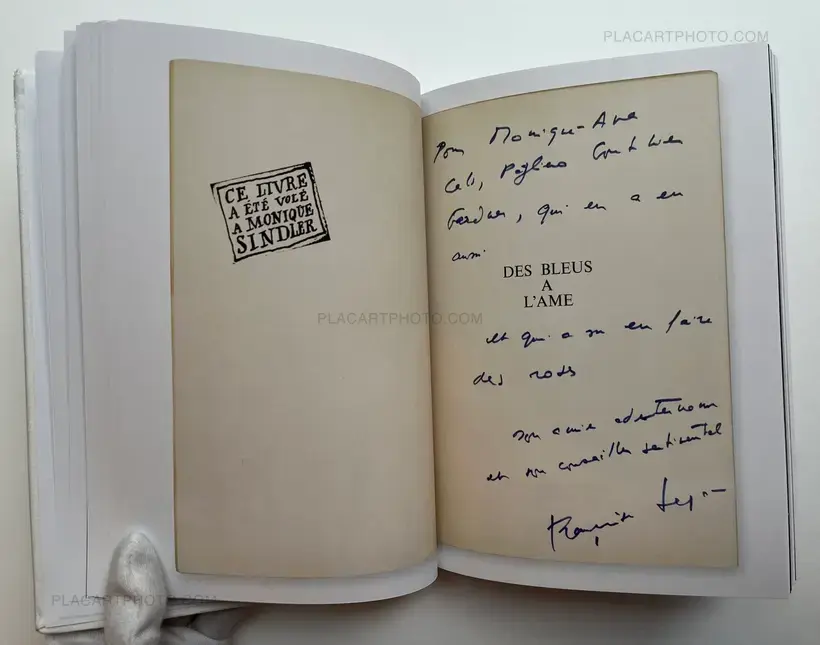 PLACARTPHOTO.COM
CE LIVRE
A ÉTÉ VOLÉ
A MONIQUE
SINDLER
Pour Monique-Ane
qui en a eu
aussi
DES BLEUS
A
L'AME
et qui a su en faire
des roses
PLACARTPHOTO.COM
son amie
et son conseiller sentimental
Françoise Sagan
PLACARTPHOTO.COM